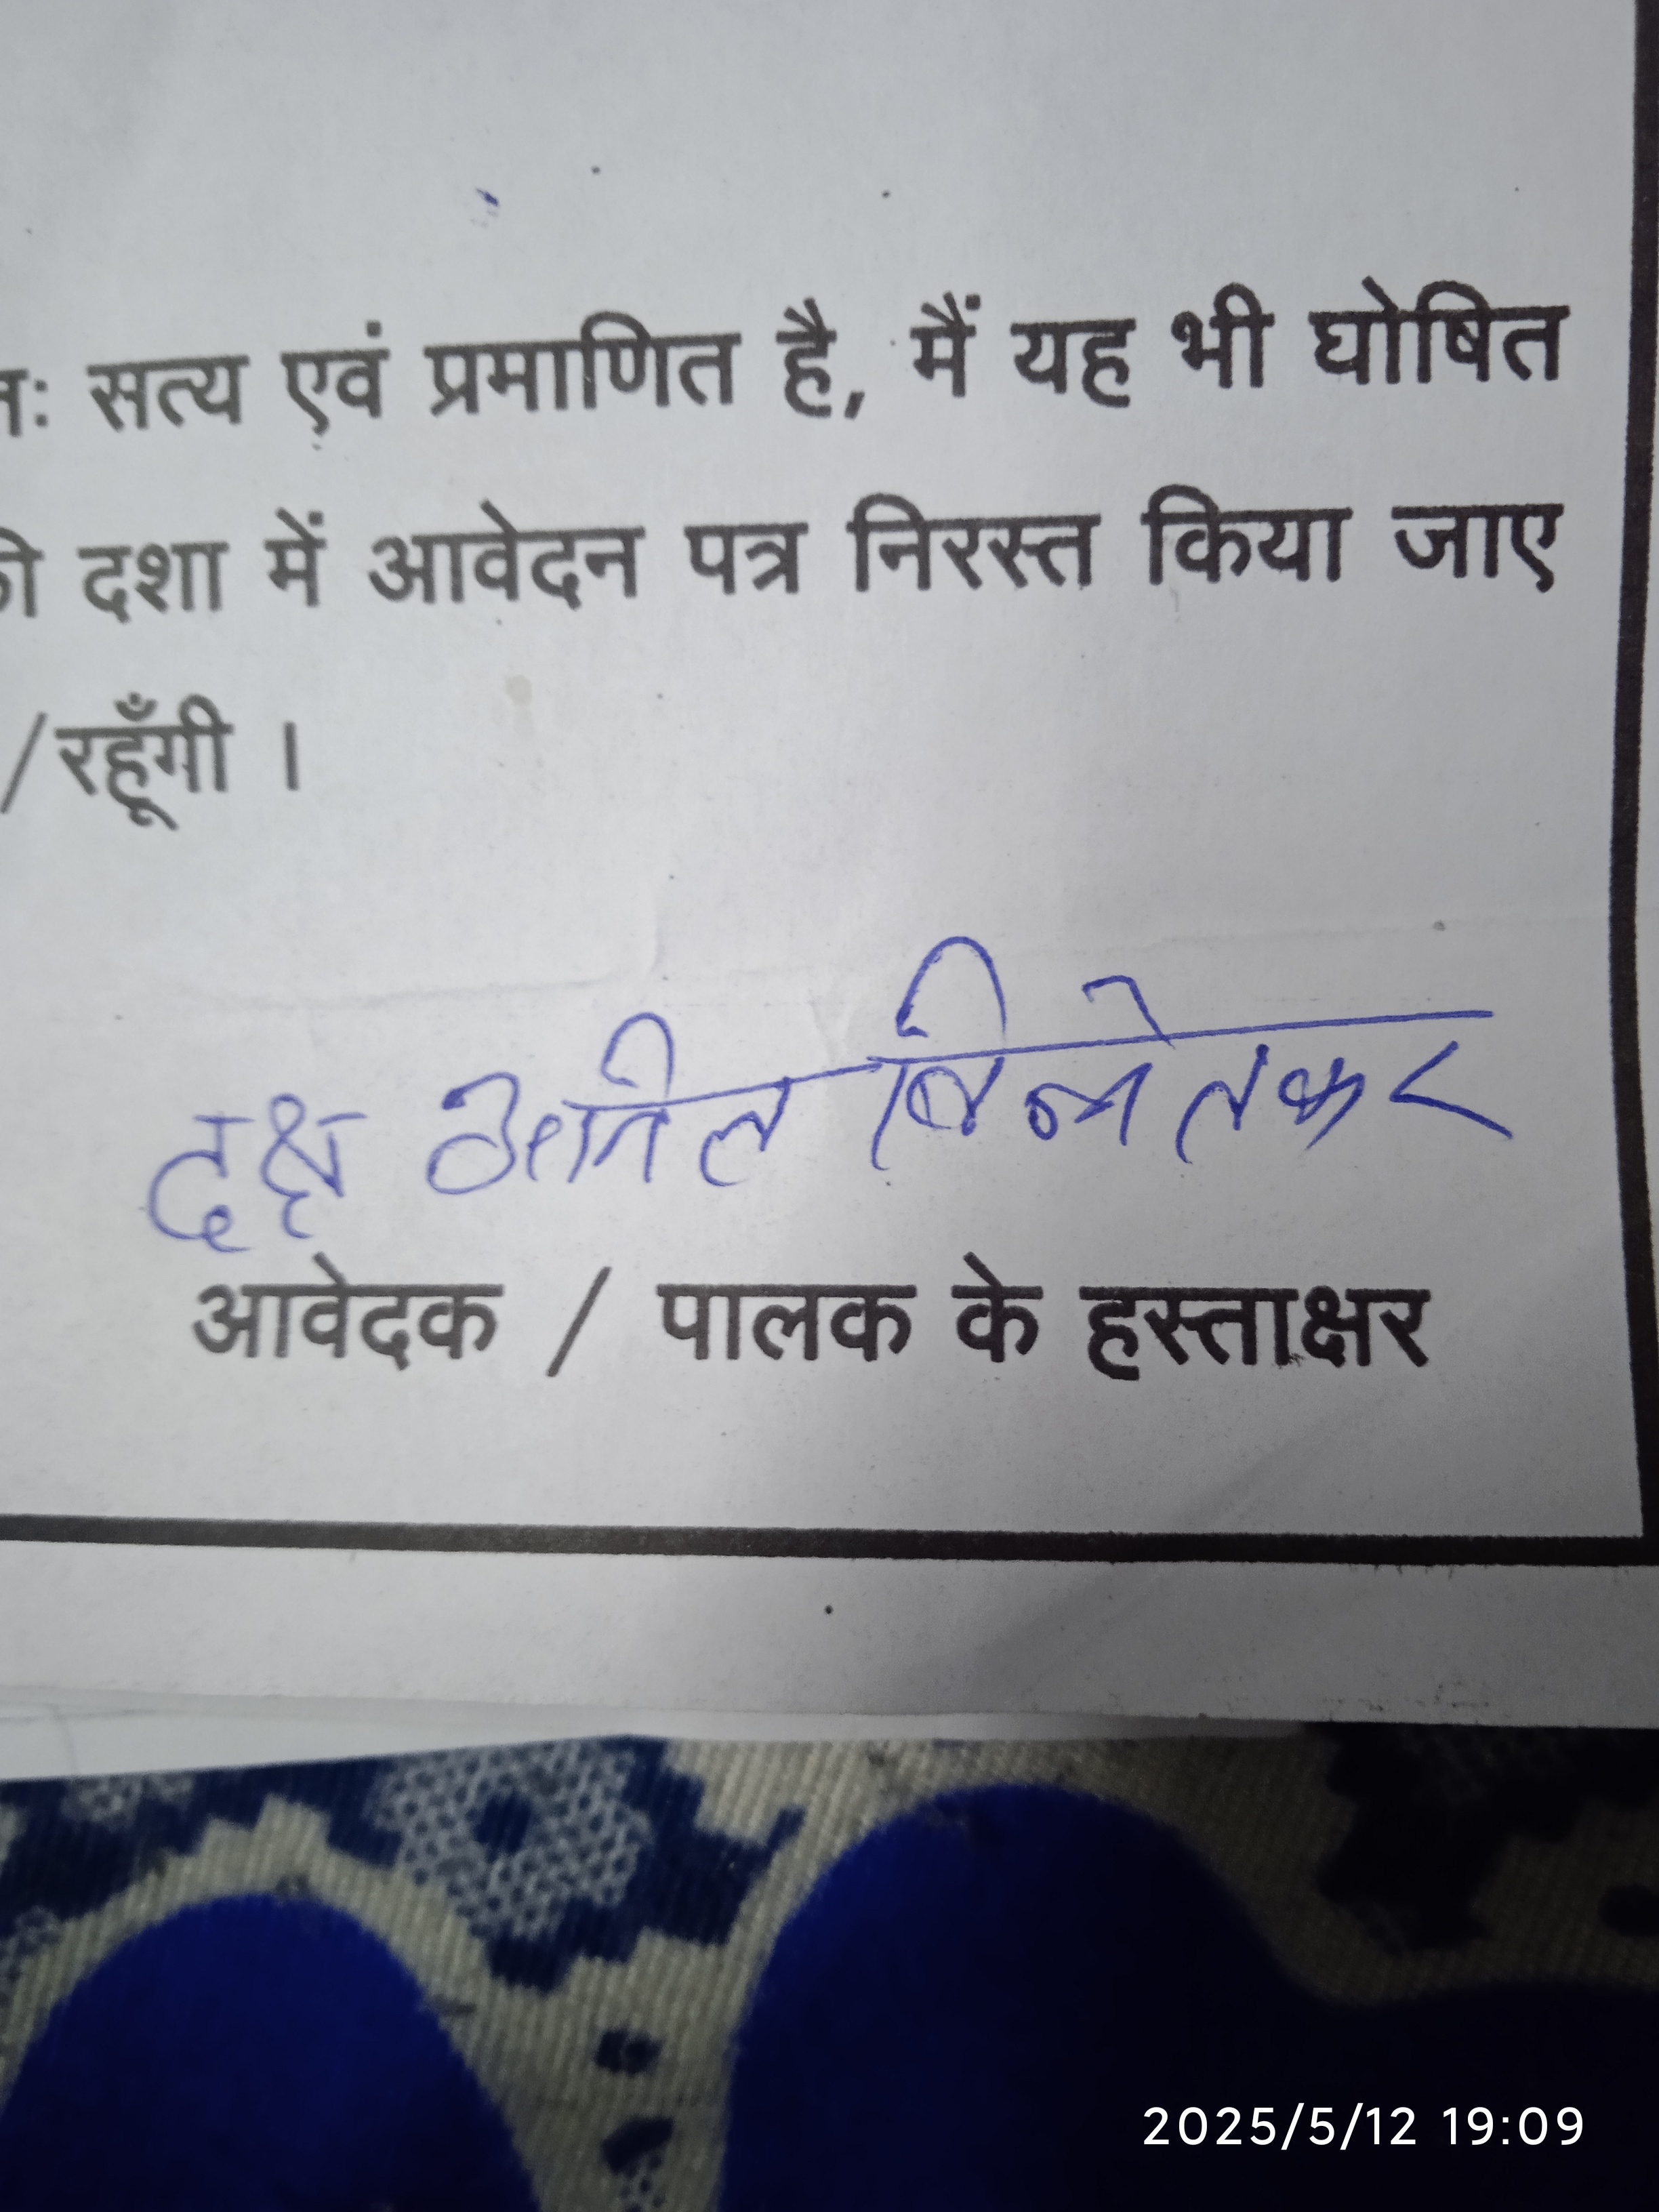 तः सत्य एवं प्रमाणित है, मैं यह भी घोषित
की दशा में आवेदन पत्र निरस्त किया जाए
/रहूँगी ।
दक्ष अनिल
आवेदक / पालक के हस्ताक्षर
2025/5/12 19:09